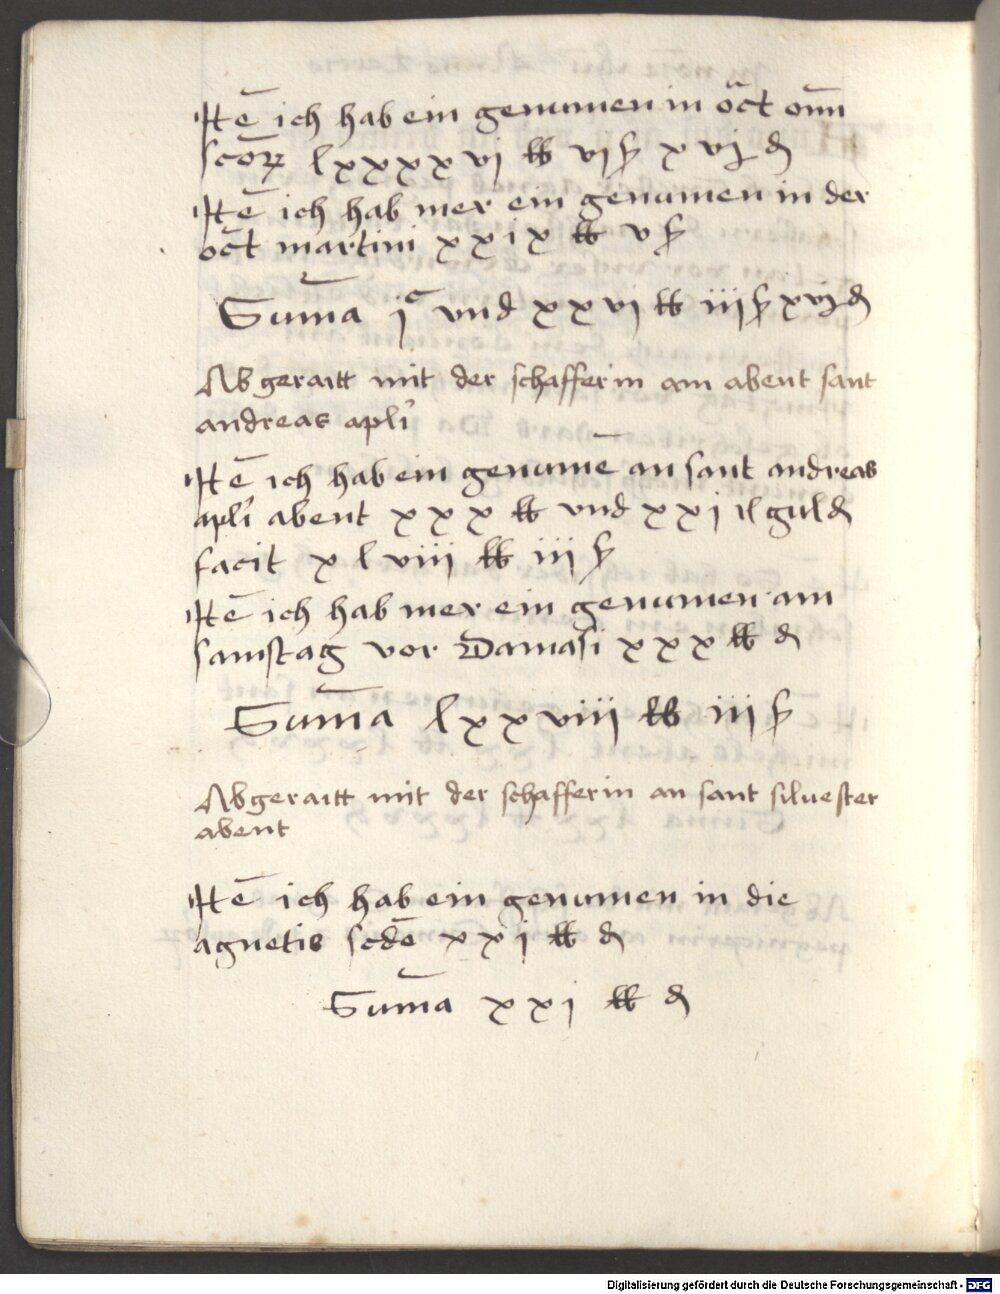 Itē ich hab ein genumen in oc̄t om̄
sco℞ lxxxxvi ℔ vi ß xvj ₰
Itē ich hab mer ein genumen in der
oc̄t martini xxix ℔ v ß
Sum̄a jᶜ vnd xxvi ℔ iii ß xvj ₰
Abgeraitt mit der schafferin am abent sant
andreas apl̄i
Itē ich hab ein genumē an sant andreas
apl̄i abent xxx ℔ vnd xxj guld
facit xlviii ℔ iii ß
Itē ich hab mer ein genumen am
samstag vor Damasi xxx ℔ ₰
Sum̄a lxxviii ℔ iii ß
Abgeraitt mit der schafferin an sant siluester
abent
Itē ich hab ein genumen in die
agnetis scdē xxj ℔ ₰
Sum̄a xxj ℔ ₰
Digitalisierung gefördert durch die Deutsche Forschungsgemeinschaft - DFG